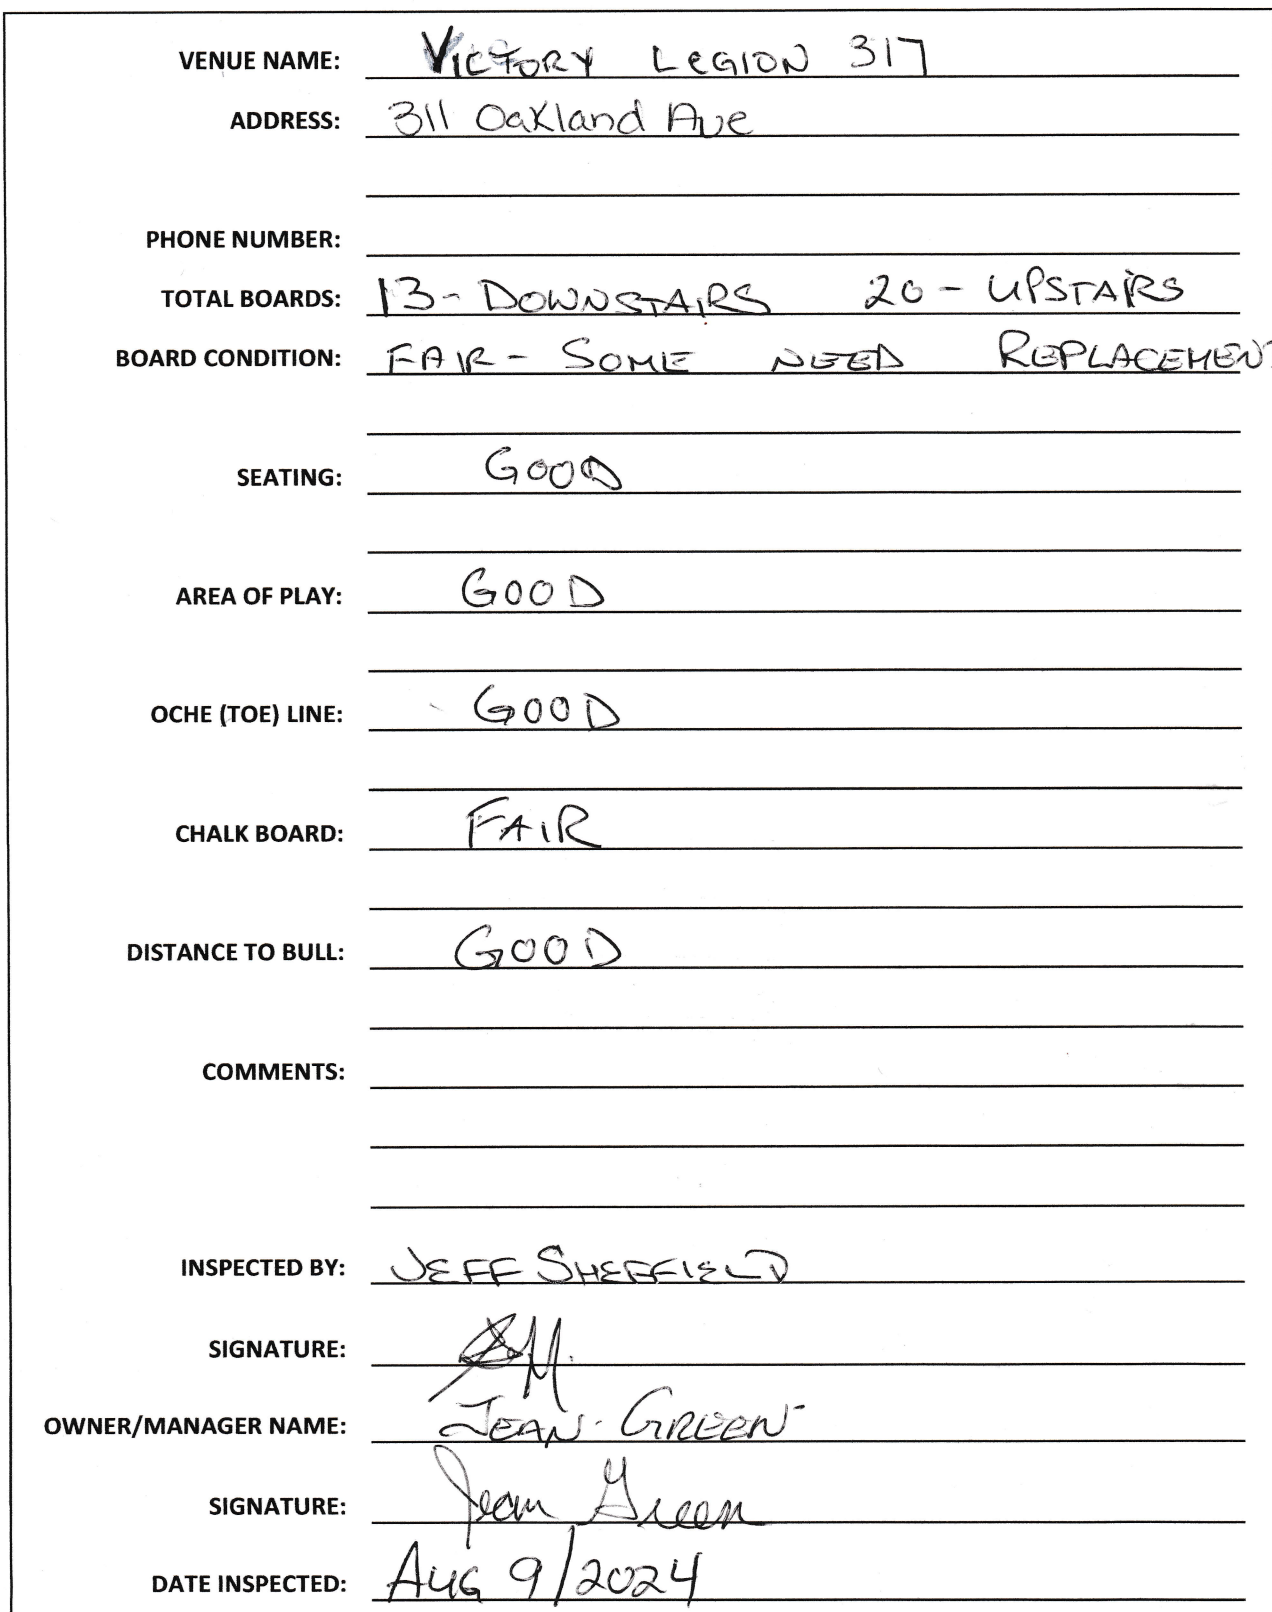 VENUE NAME: VICTORY LEGION 317
ADDRESS: 311 Oakland Ave
PHONE NUMBER:
TOTAL BOARDS: 13 - DOWNSTAIRS 20 - UPSTAIRS
BOARD CONDITION: FAIR - SOME NEED REPLACEMENT
SEATING: GOOD
AREA OF PLAY: GOOD
OCHE (TOE) LINE: GOOD
CHALK BOARD: FAIR
DISTANCE TO BULL: GOOD
COMMENTS:
INSPECTED BY: JEFF SHEFFIELD
SIGNATURE:
OWNER/MANAGER NAME: JEAN GREEN
SIGNATURE: Jean Green
DATE INSPECTED: AUG 9/2024